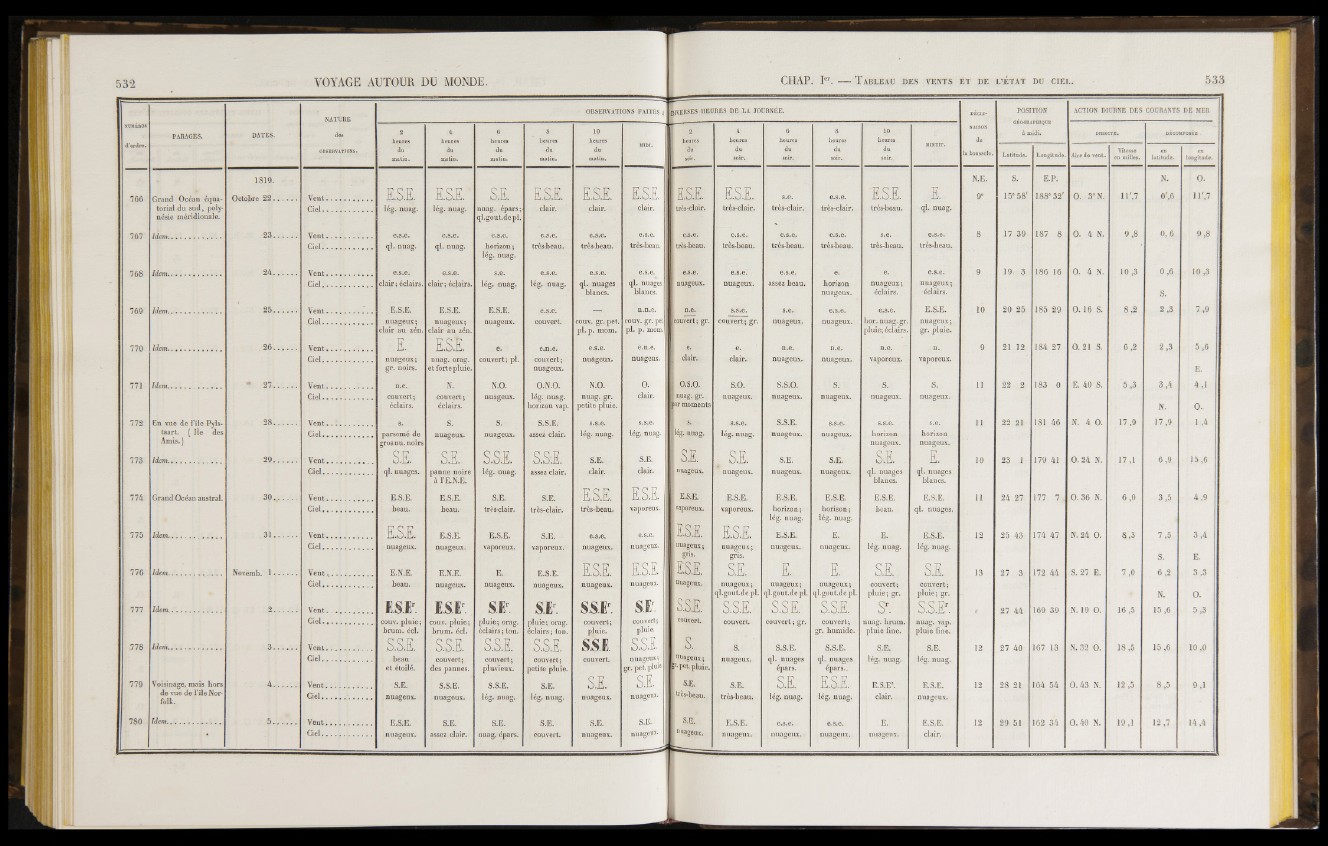 532 VOYAGE AUTOUR DU MONDE.
CHAP. Ier. — TABLEAU DES VENTS ET DE L'ÉTAT DU CIEL. 533
NUMÉROS d'ordre. PARAGES. DATES. NATURE des OBSERVATIONS. OBSERVATIONS FAITES DIVERSES HEURES DE LA JOURNÉE. DÉCLINAISON de la boussole. POSITION GÉOGRAPHIQUE à midi. ACTION DIURNE DES COURANTS DE MER
2 heures du matin. 4 heures du matin. 6 heures du matin. 8 heures du matin. 10 heures du matin. MIDI. 2 heures du soir. 4 heures du soir. 6 heures du soir. 8 heures du soir. 10 heures du soir. MINUIT. Latitude. Longitude. DIRECTE. Aire de vent. Vitesse en milles. DÉCOMPOSÉE en latitude. en longitude.
1819. N.E. S. E.P. N. O.
766 Grand Océan équatorial du sud, polynésie méridionale. Octobre 22 Vent E.S.E. E.S.E. S.E. E.S.E. E.S.E. E.S.E. E.S.E. E.S.E. s.e. e.s.e. E.S.E. E. 9° 15° 58' 188° 32' O. 3° N. 11',7 0',6 11',7
Ciel lég. nuag. lég. nuag. nuag. épars; ql. gout. de pl. clair. clair. clair. très-clair. très-clair. très-clair. très-clair. très-beau. ql. nuag.
767 Idem. 23 Vent e.s.e. e.s.e. e.s.e. e.s.e. e.s.e. e.s.e. e.s.e. e.s.e. e.s.e. e.s.e. s.e. e.s.e. 8 17 39 187 8 O. 4 N. 9,8 0,6 9,8
Ciel ql. nuag. ql. nuag. horizon; lég. nuag. très-beau. très-beau. très-beau très-beau. très-beau. très-beau. très-beau. très-beau. très-beau.
768 Idem. 24 Vent e.s.e. e.s.e. s.e. e.s.e. e.s.e. e.s.e. e.s.e. e.s.e. e.s.e. e. e. e.s.e. 9 19 3 186 16 O. 4 N. 10,3 0,6 10,3
Ciel clair; éclairs. clair; éclairs. lég. nuag. lég. nuag. ql. nuages blancs. ql. nuages blancs. nuageux. nuageux. assez beau. horizon nuageux. nuageux; éclairs. nuageux; éclairs.
S.
769 Idem. 25 Vent E.S.E. E.S.E. E.S.E. e.s.e. — n.n.e. n.e. s.s.e. s.e. e.s.e. e.s.e. E.S.E. 10 20 25 185 29 O. 16 S. 8,2 2,3 7,9
Ciel nuageux; clair au zén. nuageux; clair au zén. nuageux. couvert. couv. gr. pet. pl. p. mom. couv. gr. pet. pl. p. mom. couvert; gr. couvert; gr. nuageux. nuageux. hor. nuag. gr. pluie; éclairs. nuageux; gr. pluie.
770 Idem. 26 Vent E. E.S.E. e. e.n.e. e.s.e. e.n.e. e. e. n.e. n.e. n.e. n. 9 21 12 184 27 O. 21 S. 6,2 2,3 5,6
Ciel nuageux; gr. noirs. nuag. orag. et forte pluie. couvert; pl. couvert; nuageux. nuageux. nuageux. clair. clair. nuageux. nuageux. vaporeux. vaporeux.
E.
771 Idem. 27 Vent n.e. N. N.O. O.N.O. N.O. O. O.S.O. S.O. S.S.O. S. S. S. 11 22 2 183 0 E. 40 S. 5,3 3,4 4,1
Ciel couvert; éclairs. couvert; éclairs. nuageux. lég. nuag. horizon vap. nuag. gr. petite pluie. clair. nuag. gr. par moments nuageux. nuageux. nuageux. nuageux. nuageux.
N. O.
772 En vue de l'île Pylstaart. (Ile des Amis.) 28 Vent s. S. S. S.S.E. s.s.e. s.s.e. s. s.s.e. S.S.E. s.s.e. s.s.e. s.e. 11 22 21 181 46 N. 4 O. 17,9 17,9 1,4
Ciel parsemé de gros nu. noirs nuageux. nuageux. assez clair. lég. nuag. lég. nuag. lég. nuag. lég. nuag. nuageux. nuageux. horizon nuageux. horizon nuageux.
773 Idem. 29 Vent S.E. S.E. S.S.E. S.S.E. S.E. S.E. S.E. S.E. S.E. S.E. S.E. E. 10 23 1 179 41 O. 24 N. 17,1 6,9 15,6
Ciel ql. nuages. panne noire à l'E.N.E. lég. nuag. assez clair. clair. clair. nuageux. nuageux. nuageux. nuageux. ql. nuages blancs. ql. nuages blancs.
774 Grand Océan austral. 30 Vent E.S.E. E.S.E. S.E. S.E. E.S.E. E.S.E. E.S.E. E.S.E. E.S.E. E.S.E. E.S.E. E.S.E. 11 24 27 177 7 O. 36 N. 6,0 3,5 4,9
Ciel beau. beau. très-clair. très-clair. très-beau. vaporeux. vaporeux. vaporeux. horizon; lég. nuag. horizon; lég. nuag. beau. ql. nuages.
775 Idem. 31 Vent E.S.E. E.S.E. E.S.E. S.E. e.s.e. e.s.e. E.S.E. E.S.E. E.S.E. E. E. E.S.E. 12 25 43 174 47 N. 24 O. 8,3 7,5 3,4
Ciel nuageux. nuageux. vaporeux. vaporeux. nuageux. nuageux. nuageux; gris. nuageux; gris. nuageux. nuageux. lég. nuag. lég. nuag.
S. E.
776 Idem. Novemb. 1 Vent E.N.E. E.N.E. E. E.S.E. E.S.E. E.S.E. E.S.E. S.E. E. E. S.E. S.E. 13 27 3 172 44 S. 27 E. 7,0 6,2 3,3
Ciel beau. nuageux. nuageux. nuageux. nuageux. nuageux. nuageux. nuageux; ql. gout. de pl. nuageux; ql. gout. de pl. nuageux; ql. gout. de pl. couvert; pluie; gr. couvert; pluie; gr.
N. O.
777 Idem. 2 Vent E.S.Er. E.S.Er. S.Er. S.Er. S.S.Er. S.Er. S.S.E. S.S.E. S.S.E. S.S.E. Sr. S.S.Er 27 44 169 39 N. 19 O. 16,5 15,6 5,3
Ciel couv. pluie; brum. écl. couv. pluie; brum. écl. pluie; orag. éclairs; ton. pluie; orag. éclairs; ton. couvert; pluie. couvert; pluie. couvert. couvert. couvert; gr. couvert; gr. humide. nuag. brum. pluie fine. nuag. vap. pluie fine.
778 Idem. 3 Vent S.S.E. S.S.E. S.S.E. S.S.E. S.S.E. S.S.E. S. S. S.S.E. S.S.E. S.E. S.E. 12 27 40 167 13 N. 32 O. 18,5 15,6 10,0
Ciel beau et étoilé. couvert; des pannes. couvert; pluvieux. couvert; petite pluie. couvert. nuageux; gr. pet. pluie nuageux; gr. pet. pluie. nuageux. ql. nuages épars. ql. nuages épars. lég. nuag. lég. nuag.
779 Voisinage, mais hors de vue de l'île Norfolk. 4 Vent S.E. S.S.E. S.S.E. S.E. S.E. S.E. S.E. S.E. S.E. E.S.E. E.S.Er. E.S.E. 12 28 21 164 54 O. 43 N. 12,5 8,5 9,1
Ciel nuageux. nuageux. lég. nuag. lég. nuag. nuageux. nuageux. très-beau. très-beau. lég. nuag. lég. nuag. clair. nuageux.
780 Idem. 5 Vent E.S.E. S.E. S.E. S.E. S.E. S.E. S.E. E.S.E. e.s.e. e.s.e. E. E.S.E. 12 29 51 162 34 O. 40 N. 19,1 12,7 14,4
Ciel nuageux. assez clair. nuag. épars. couvert. nuageux. nuageux. nuageux. nuageux. nuageux. nuageux. nuageux. clair.